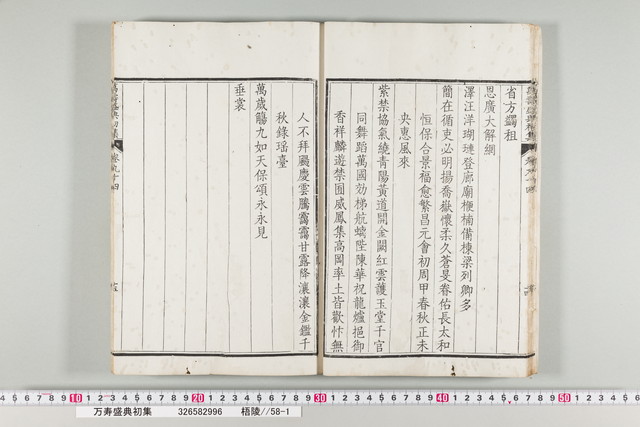 省方蠲租
思廣大解網
澤汪洋瑚璉登廊廟楩楠備棟梁列卿多
簡在循吏必明揚喬嶽懷柔久蒼旻眷佑長太和
恒保合景福愈繁昌元會初周甲春秋正未
央惠風來
紫禁協氣繞青陽黃道開金闕紅雲護玉堂千官
同舞蹈萬國効梯航螭陛陳華祝龍爐挹御
香祥麟遊禁囿威鳳集高岡率土皆歡忭無
人不拜颺慶雲騰靄靄甘露降瀼瀼金鑑千
秋錄瑶臺
萬歲觴九如天保頌永永見
垂裳
万寿盛典初集 326582996 梧陵//58-1